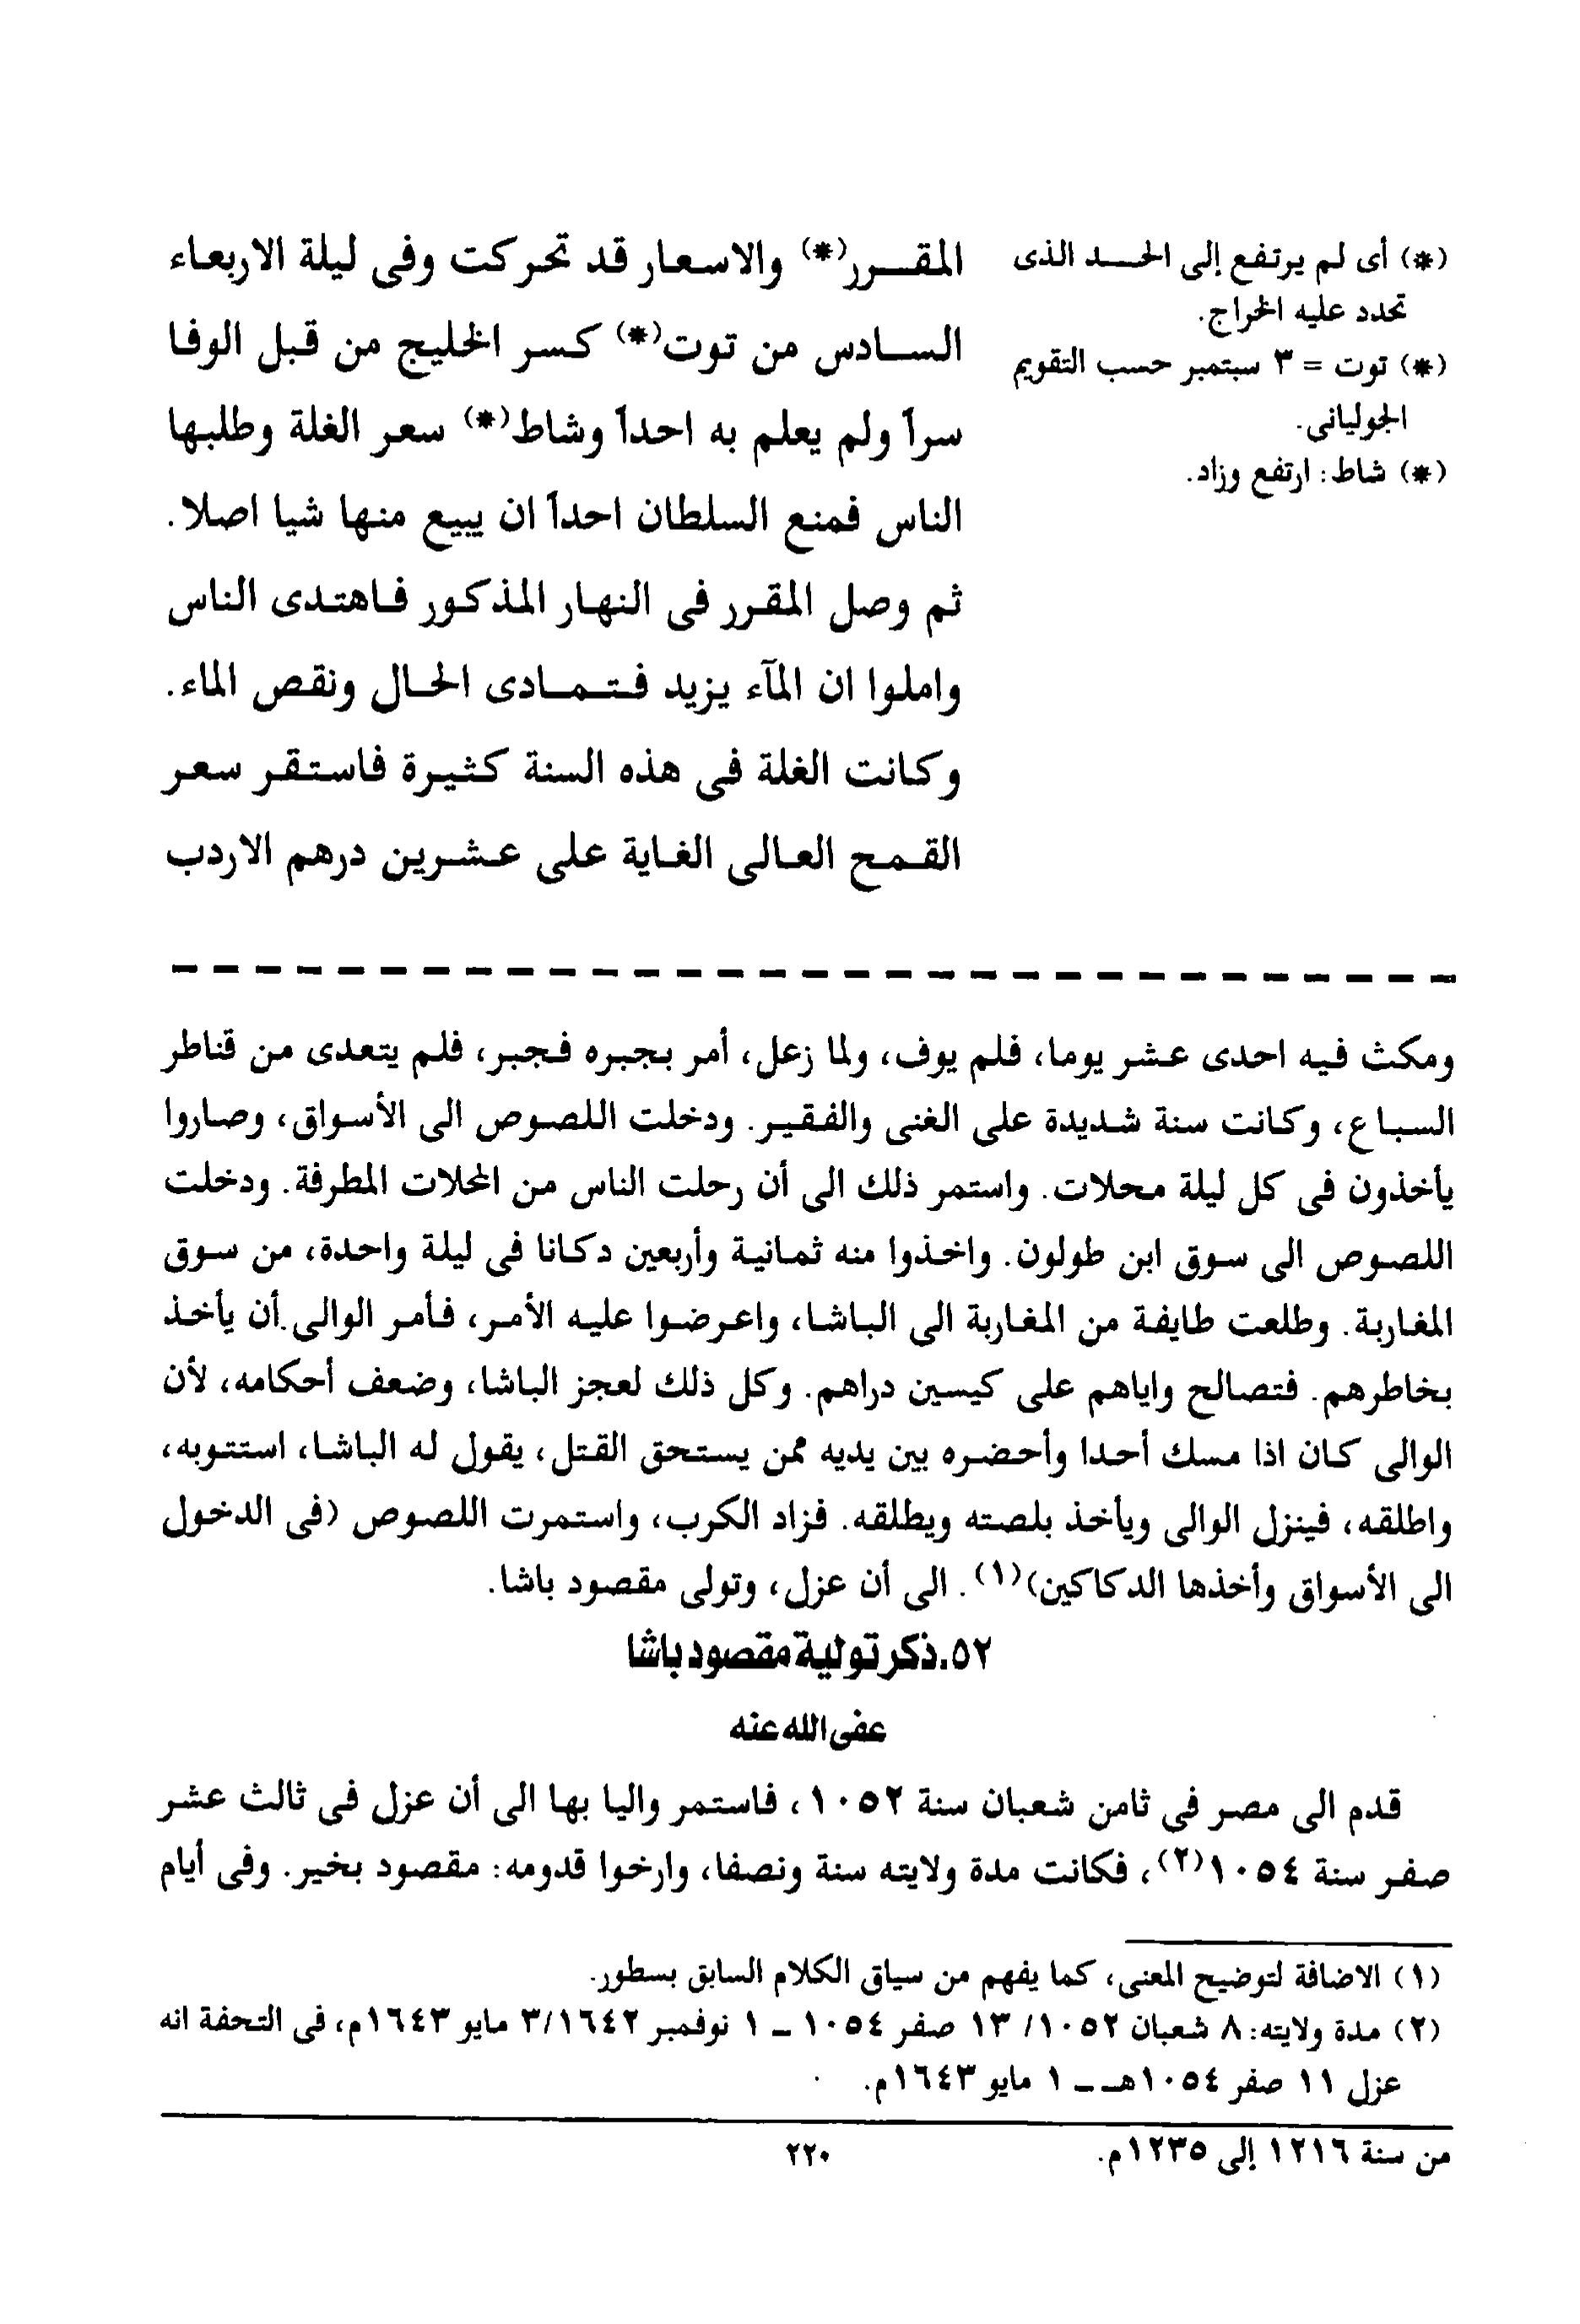 المقرر(*) والاسعار قد تحركت وفى ليلة الاربعاء
السادس من توت(*) كسر الخليج من قبل الوفا
سراً ولم يعلم به احداً وشاط(*) سعر الغلة وطلبها
الناس فمنع السلطان احداً ان يبيع منها شيا اصلا.
ثم وصل المقرر فى النهار المذكور فاهتدى الناس
واملوا ان المآء يزيد فتمادى الحال ونقص الماء.
وكانت الغلة فى هذه السنة كثيرة فاستقر سعر
القمح العالى الغاية على عشرين درهم الاردب
(*) أى لم يرتفع إلى الحد الذى
تحدد عليه الخراج.
(*) توت = ٣ سبتمبر حسب التقويم
الجوليانى.
(*) شاط: ارتفع وزاد.
ومكث فيه احدى عشر يوما، فلم يوف، ولما زعل، أمر بجبره فجبر، فلم يتعدى من قناطر
السباع، وكانت سنة شديدة على الغنى والفقير. ودخلت اللصوص الى الأسواق، وصاروا
يأخذون فى كل ليلة محلات. واستمر ذلك الى أن رحلت الناس من المحلات المطرفة. ودخلت
اللصوص الى سوق ابن طولون. واخذوا منه ثمانية وأربعين دكانا فى ليلة واحدة، من سوق
المغاربة. وطلعت طايفة من المغاربة الى الباشا، واعرضوا عليه الأمر، فأمر الوالى.أن يأخذ
بخاطرهم. فتصالح واياهم على كيسين دراهم. وكل ذلك لعجز الباشا، وضعف أحكامه، لأن
الوالى كان اذا مسك أحدا وأحضره بين يديه ممن يستحق القتل، يقول له الباشا، استتوبه،
واطلقه، فينزل الوالى ويأخذ بلصته ويطلقه. فزاد الكرب، واستمرت اللصوص (فى الدخول
الى الأسواق وأخذها الدكاكين)(١). الى أن عزل، وتولى مقصود باشا.
٥٢. ذكر تولية مقصود باشا
عفى الله عنه
قدم الى مصر فى ثامن شعبان سنة ١٠٥٢، فاستمر واليا بها الى أن عزل فى ثالث عشر
صفر سنة ١٠٥٤(٢)، فكانت مدة ولايته سنة ونصفا، وارخوا قدومه: مقصود بخير. وفى أيام
(١) الاضافة لتوضيح المعنى، كما يفهم من سياق الكلام السابق بسطور.
(٢) مدة ولايته: ٨ شعبان ١٠٥٢/ ١٣ صفر ١٠٥٤ - ١ نوفمبر ٣/١٦٤٢ مايو ١٦٤٣م، فى التحفة انه
عزل ١١ صفر ١٠٥٤هـ - ١ مايو ١٦٤٣م.
من سنة ١٢١٦ إلى ١٢٣٥م.
٢٢٠